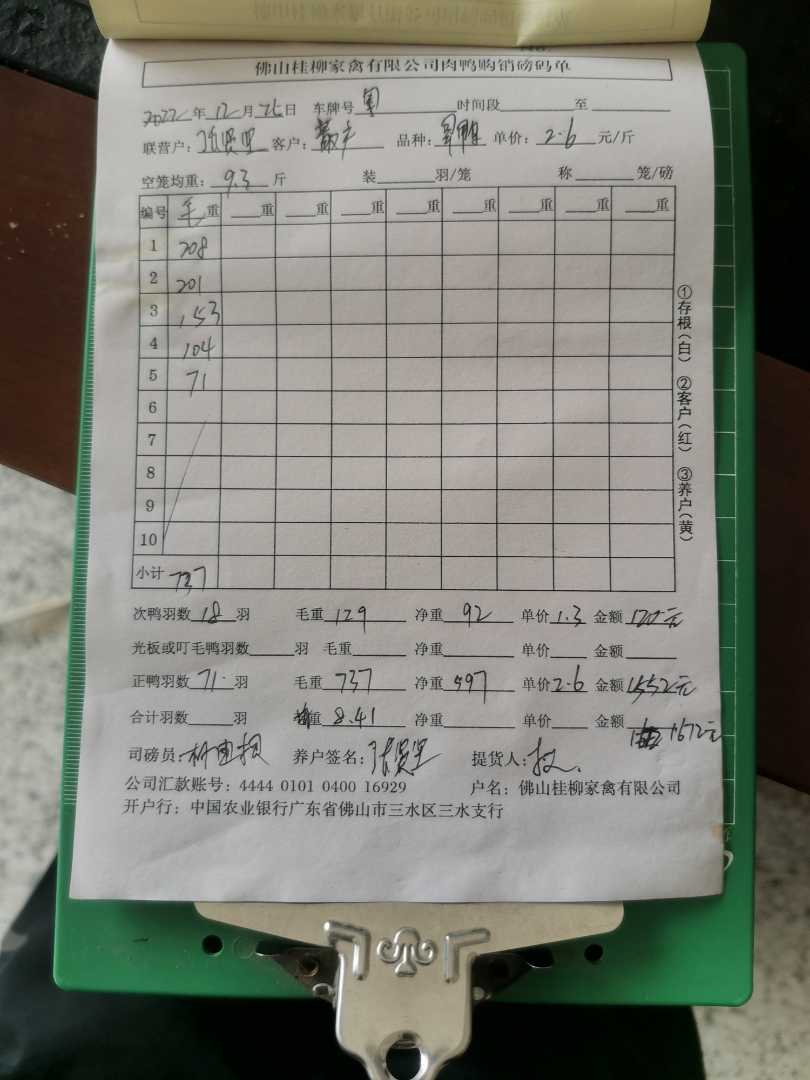 佛山桂柳家禽有限公司肉鸭购销磅码单
2022年12月26日 车牌号 时间段 至
联营户： 客户： 品种： 单价：2.6元/斤
空笼均重：9.3斤 装 羽/笼 称 笼/磅
编号 毛重 重 重 重 重 重 重 重 重
1 208
2 201
3 153
4 104
5 71
6
7
8
9
10
小计 737
次鸭羽数18羽 毛重129 净重92 单价1.3 金额120元
光板或叮毛鸭羽数 羽 毛重 净重 单价 金额
正鸭羽数71羽 毛重737 净重597 单价2.6 金额1552元
合计羽数 羽 均重8.41 净重 单价 金额 1672元
司磅员： 养户签名： 提货人：
公司汇款账号：4444 0101 0400 16929 户名：佛山桂柳家禽有限公司
开户行：中国农业银行广东省佛山市三水区三水支行
①存根(白) ②客户(红) ③养户(黄)